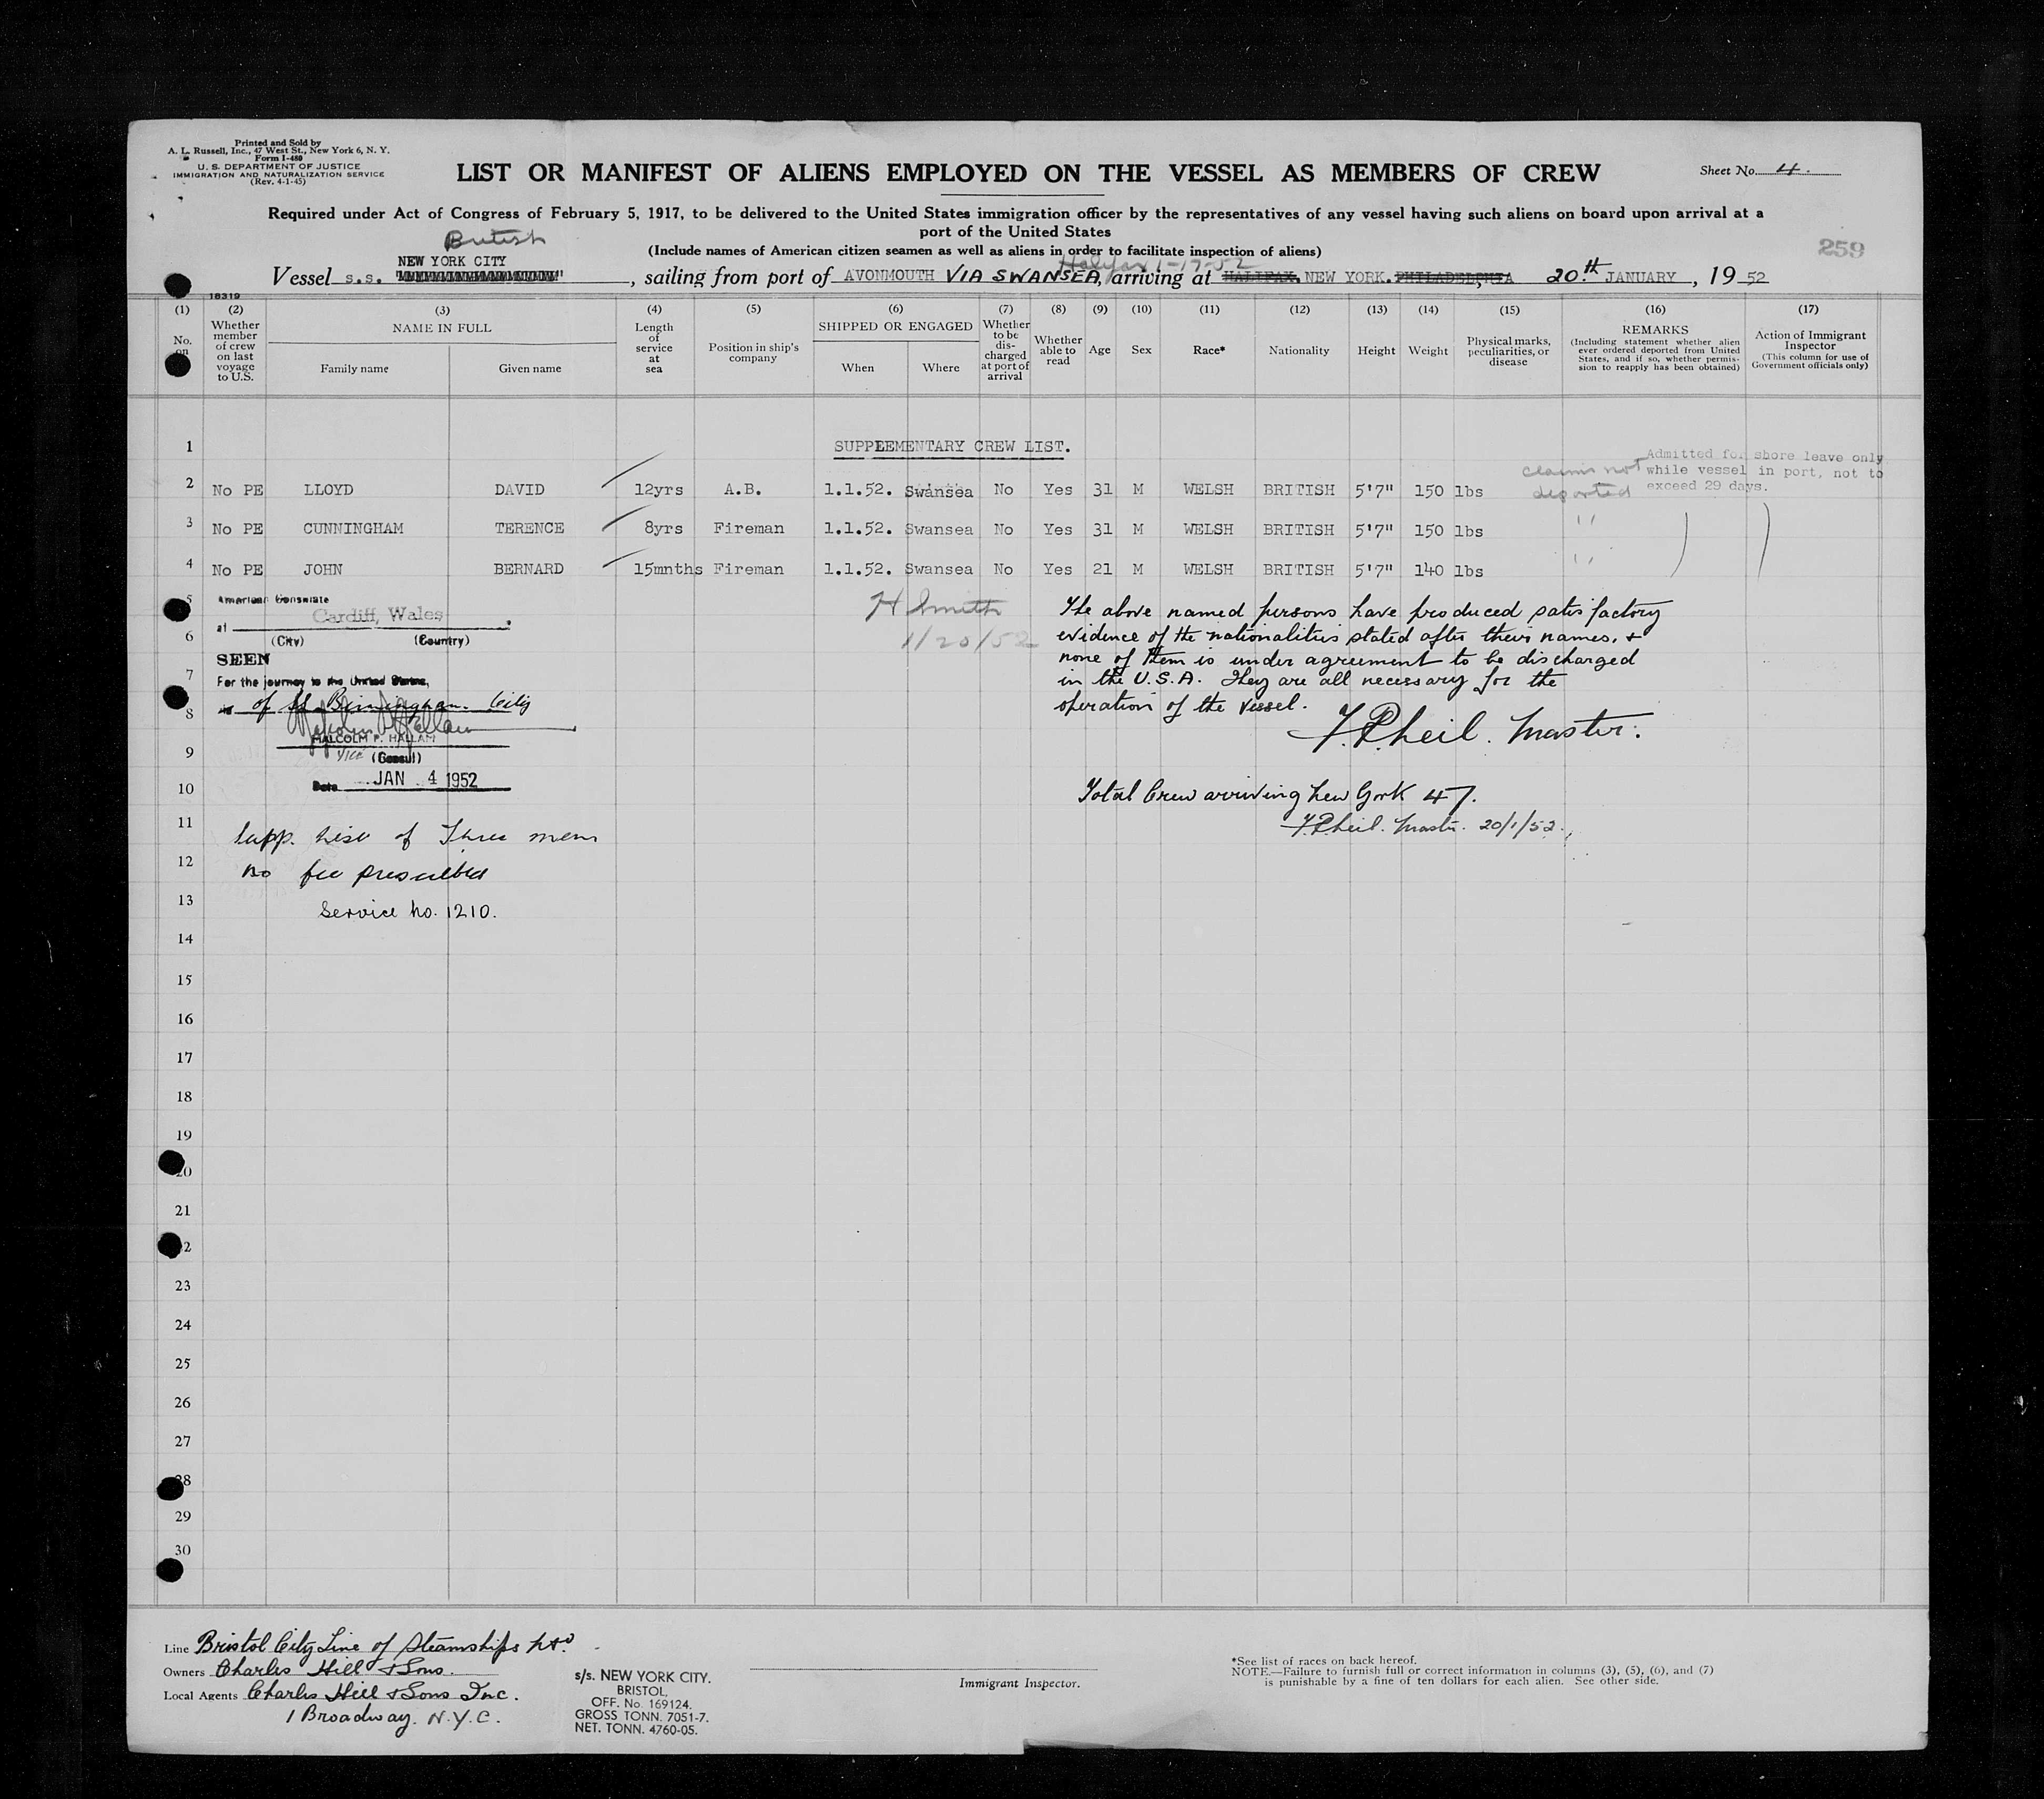 Printed and Sold by
A. L. Russell, Inc., 47 West St., New York 6, N. Y.
Form I-480
U. S. DEPARTMENT OF JUSTICE
IMMIGRATION AND NATURALIZATION SERVICE
(Rev. 4-1-45)
LIST OR MANIFEST OF ALIENS EMPLOYED ON THE VESSEL AS MEMBERS OF CREW
Sheet No. 4.
Required under Act of Congress of February 5, 1917, to be delivered to the United States immigration officer by the representatives of any vessel having such aliens on board upon arrival at a
port of the United States
(Include names of American citizen seamen as well as aliens in order to facilitate inspection of aliens)
British
259
NEW YORK CITY
Halifax 1-17-52
Vessel S.S. , sailing from port of AVONMOUTH VIA SWANSEA, arriving at HALIFAX. NEW YORK. PHILADELPHIA 20th JANUARY, 1952
16319
(1) (2) (3) (4) (5) (6) (7) (8) (9) (10) (11) (12) (13) (14) (15) (16) (17)
No. on
Whether member of crew on last voyage to U.S.
NAME IN FULL
Family name Given name
Length of service at sea
Position in ship's company
SHIPPED OR ENGAGED
When Where
Whether to be discharged at port of arrival
Whether able to read
Age
Sex
Race*
Nationality
Height
Weight
Physical marks, peculiarities, or disease
REMARKS
(Including statement whether alien ever ordered deported from United States, and if so, whether permission to reapply has been obtained)
Action of Immigrant Inspector
(This column for use of Government officials only)
1 SUPPLEMENTARY CREW LIST.
2 No PE LLOYD DAVID 12yrs A.B. 1.1.52. Swansea No Yes 31 M WELSH BRITISH 5'7" 150 lbs claims not deported
Admitted for shore leave only
while vessel in port, not to
exceed 29 days.
3 No PE CUNNINGHAM TERENCE 8yrs Fireman 1.1.52. Swansea No Yes 31 M WELSH BRITISH 5'7" 150 lbs "
4 No PE JOHN BERNARD 15mnths Fireman 1.1.52. Swansea No Yes 21 M WELSH BRITISH 5'7" 140 lbs "
5
6
7
8
9
10
11
12
13
14
15
16
17
18
19
20
21
2
23
24
25
26
27
28
29
30
American Consulate
at Cardiff, Wales.
(City) (Country)
SEEN
For the journey to the United States,
of SS Birmingham City
Malcolm P. Hallam
MALCOLM P. HALLAM
Vice (Consul)
Date JAN 4 1952
Supp. list of Three men
no fee prescribed
Service No. 1210.
H Smith
1/20/52
The above named persons have produced satisfactory
evidence of the nationalities stated after their names, +
none of them is under agreement to be discharged
in the U.S.A. They are all necessary for the
operation of the vessel.
Master.
Total Crew arriving New York 47.
Master. 20/1/52.
Line Bristol City Line of Steamships Ltd.
Owners Charles Hill & Sons.
Local Agents Charles Hill & Sons Inc.
1 Broadway. N.Y.C.
s/s. NEW YORK CITY.
BRISTOL,
OFF. No. 169124.
GROSS TONN. 7051-7.
NET. TONN. 4760-05.
Immigrant Inspector.
*See list of races on back hereof.
NOTE.—Failure to furnish full or correct information in columns (3), (5), (6), and (7)
is punishable by a fine of ten dollars for each alien. See other side.